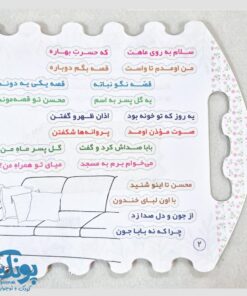 سلام به روی ماهت که حسرت بهاره
من اومدم تا واست قصه بگم دوباره
قصه نگو نباته قصه یکی یه دونه
یه گل پسر به اسم محسن تو قصه‌مونه
یه روز که تو خونه بود اذان ظهر و گفتن
صوت مؤذن اومد پروانه‌ها شکفتن
بابا صداش کرد و گفت گل پسر ماه من
می‌خوام برم به مسجد میای تو همراه من
محسن تا اینو شنید
با اون لبای خندون
از جون و دل صدا زد
چرا که نه بابا جون
۲